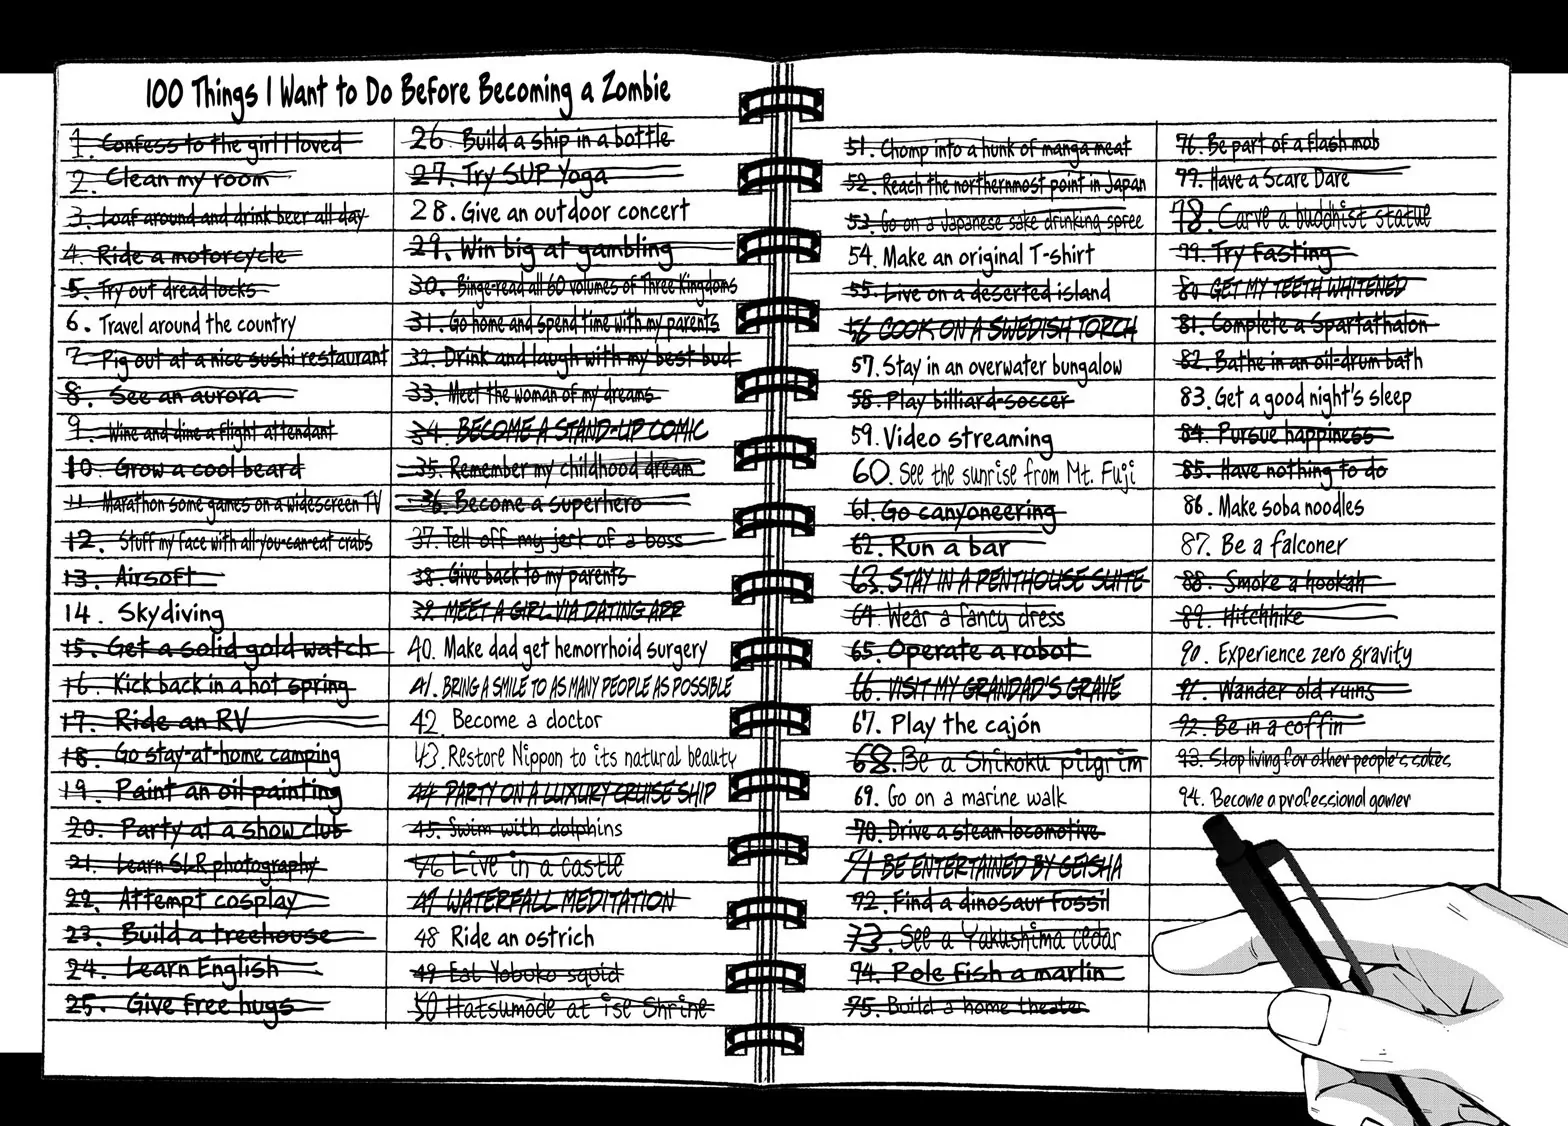 100 Things I Want to Do Before Becoming a Zombie
1. Confess to the girl I loved
2. Clean my room
3. Loaf around and drink beer all day
4. Ride a motorcycle
5. Try out dreadlocks
6. Travel around the country
7. Pig out at a nice sushi restaurant
8. See an aurora
9. Wine and dine a flight attendant
10. Grow a cool beard
11. Marathon some games on a widescreen TV
12. Stuff my face with all-you-can-eat crabs
13. Airsoft
14. Skydiving
15. Get a solid gold watch
16. Kick back in a hot spring
17. Ride an RV
18. Go stay-at-home camping
19. Paint an oil painting
20. Party at a show club
21. Learn SLR photography
22. Attempt cosplay
23. Build a treehouse
24. Learn English
25. Give free hugs
26. Build a ship in a bottle
27. Try SUP Yoga
28. Give an outdoor concert
29. Win big at gambling
30. Binge-read all 60 volumes of Three Kingdoms
31. Go home and spend time with my parents
32. Drink and laugh with my best bud
33. Meet the woman of my dreams
34. BECOME A STAND-UP COMIC
35. Remember my childhood dream
36. Become a superhero
37. Tell off my jerk of a boss
38. Give back to my parents
39. MEET A GIRL VIA DATING APP
40. Make dad get hemorrhoid surgery
41. BRING A SMILE TO AS MANY PEOPLE AS POSSIBLE
42. Become a doctor
43. Restore Nippon to its natural beauty
44 PARTY ON A LUXURY CRUISE SHIP
45. Swim with dolphins
46 Live in a castle
47 WATERFALL MEDITATION
48 Ride an ostrich
49 Eat Yobuko squid
50 Hatsumode at ise Shrine
51. Chomp into a hunk of manga meat
52. Reach the northernmost point in Japan
53. Go on a Japanese sake drinking spree
54. Make an original T-shirt
55. Live on a deserted island
56 COOK ON A SWEDISH TORCH
57. Stay in an overwater bungalow
58. Play billiard-soccer
59. Video streaming
60. See the sunrise from Mt. Fuji
61. Go canyoneering
62. Run a bar
63. STAY IN A PENTHOUSE SUITE
64. Wear a fancy dress
65. Operate a robot
66. VISIT MY GRANDAD'S GRAVE
67. Play the cajón
68. Be a Shikoku pilgrim
69. Go on a marine walk
70. Drive a steam locomotive
71 BE ENTERTAINED BY GEISHA
72. Find a dinosaur fossil
73. See a Yakushima cedar
74. Pole fish a marlin
75. Build a home theater
76. Be part of a flash mob
77. Have a Scare Dare
78. Carve a buddhist statue
79. Try fasting
80 GET MY TEETH WHITENED
81. Complete a Spartathalon
82. Bathe in an oil-drum bath
83. Get a good night's sleep
84. Pursue happiness
85. Have nothing to do
86. Make soba noodles
87. Be a falconer
88. Smoke a hookah
89. Hitchhike
90. Experience zero gravity
91. Wander old ruins
92. Be in a coffin
93. Stop living for other people's sakes
94. Become a professional gamer